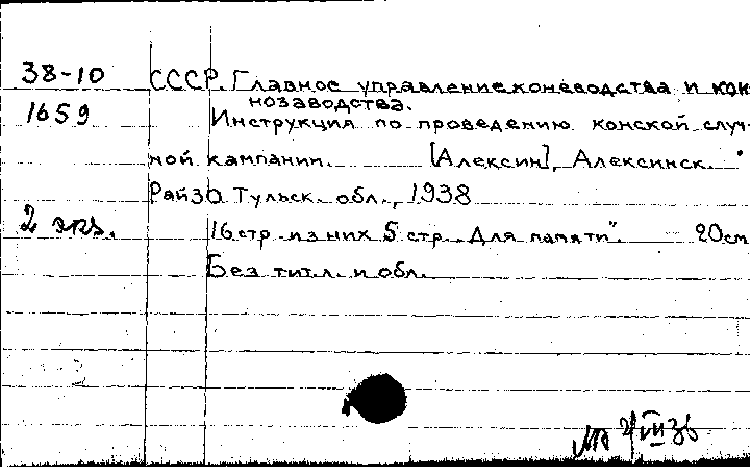 38-10 СССР. Главное управление коневодства и кон
нозаводства.
1659 Инструкция по проведению конской случ-
ной кампании. [Алексин], Алексинск.
РайЗО Тульск. обл., 1938
2 экз. 16 стр. из них 5 стр. „Для памяти". 20см
Без тит.л. и обл.
VIII 38